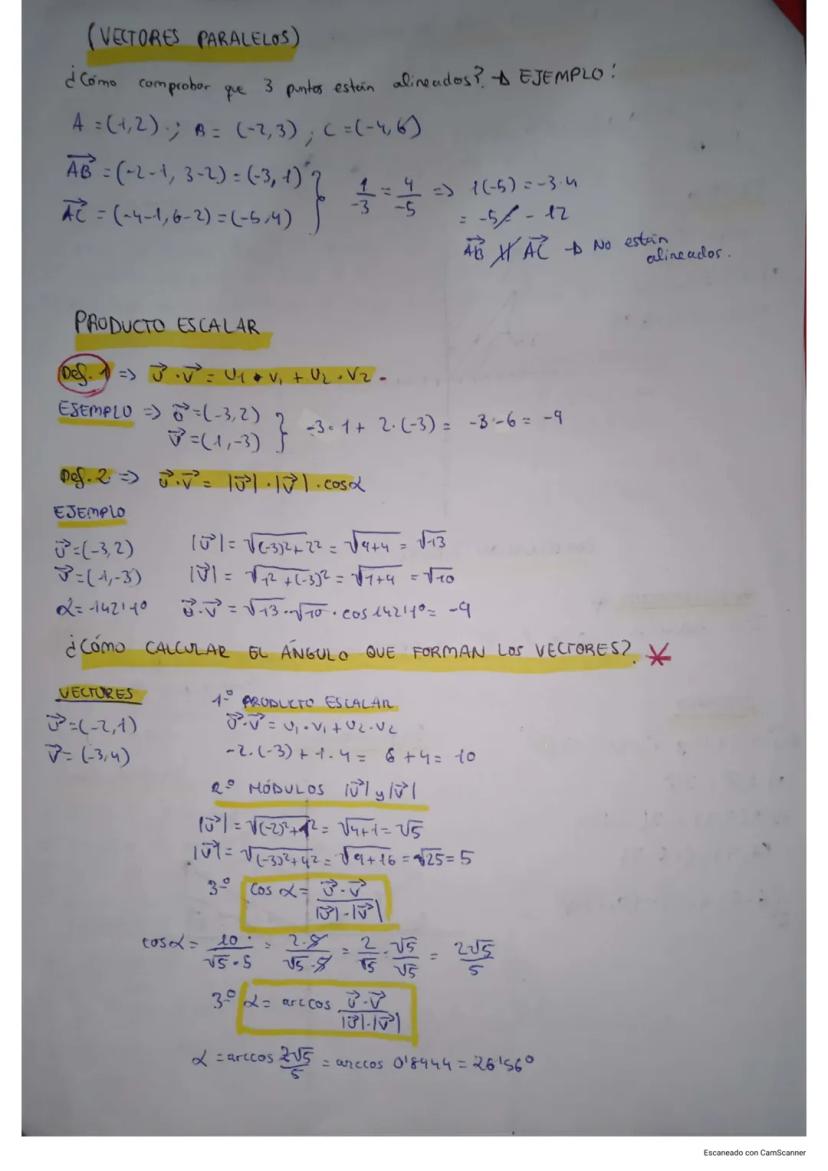 (VECTORES PARALELOS)
¿Cómo comprobar que 3 puntos están alineados? → EJEMPLO:
A = (1,2) ; B = (-2,3) ; C = (-4,6)
AB = (-2-1, 3-2) = (-3, 1) } 1/-3 = 4/-5 => 1(-5) = -3·4
AC = (-4-1, 6-2) = (-5,4)
= -5 ≠ -12
AB ∦ AC → No están alineados.
PRODUCTO ESCALAR
Def. 1 => u⃗·v⃗ = u1·v1 + u2·v2.
EJEMPLO => u⃗ = (-3,2) } -3·1 + 2·(-3) = -3-6 = -9
v⃗ = (1,-3)
Def. 2 => u⃗·v⃗ = |u⃗|·|v⃗|·cosα
EJEMPLO
u⃗ = (-3,2) |u⃗| = √(-3)²+2² = √9+4 = √13
v⃗ = (1,-3) |v⃗| = √1²+(-3)² = √1+9 = √10
α = 142'1° u⃗·v⃗ = √13·√10·cos 142'1° = -9
¿CÓMO CALCULAR EL ÁNGULO QUE FORMAN LOS VECTORES? *
VECTORES
1º PRODUCTO ESCALAR
u⃗ = (-2,1) u⃗·v⃗ = u1·v1 + u2·v2
v⃗ = (-3,4) -2·(-3) + 1·4 = 6+4 = 10
2º MÓDULOS |u⃗| y |v⃗|
|u⃗| = √(-2)²+1² = √4+1 = √5
|v⃗| = √(-3)²+4² = √9+16 = √25 = 5
3º cos α = u⃗·v⃗ / |u⃗|·|v⃗|
cosα = 10/√5·5 = 2·5/√5·5 = 2/√5 · √5/√5 = 2√5/5
3º α = arccos u⃗·v⃗ / |u⃗|·|v⃗|
α = arccos 2√5/5 = arccos 0'8944 = 26'56°
Escaneado con CamScanner